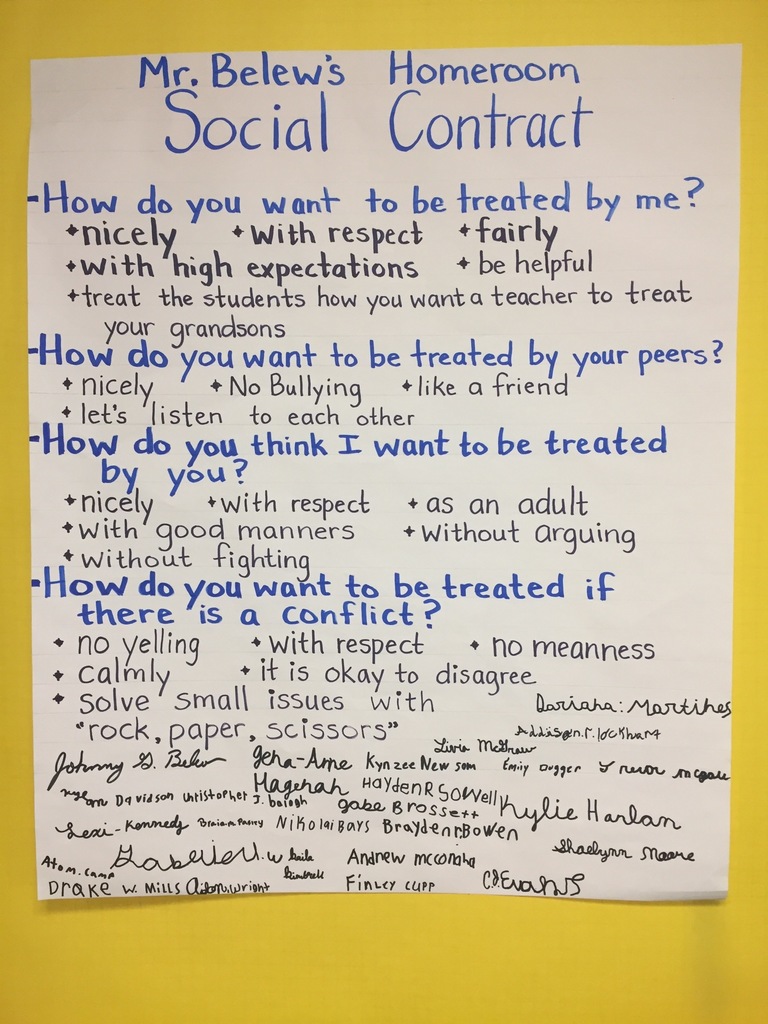 Mr. Belew's Homeroom
Social Contract
-How do you want to be treated by me?
+nicely +with respect +fairly
+with high expectations +be helpful
+treat the students how you want a teacher to treat
your grandsons
-How do you want to be treated by your peers?
+nicely +No Bullying +like a friend
+let's listen to each other
-How do you think I want to be treated
by you?
+nicely +with respect +as an adult
+with good manners +without arguing
+without fighting
-How do you want to be treated if
there is a conflict?
+no yelling +with respect +no meanness
+calmly +it is okay to disagree
+solve small issues with
"rock, paper, scissors"
Dariana: Martines
Addison.r.lockhart
Livia McGraw
Johnny G. Belew Jena-Anne Kynzee Newsom Emily Dugger Trevor
Hagenah Hayden R Sowell
Davidson Christopher J. Gabe Brossett Kylie Harlan
Lexi-Kennedy Nikolai Bays Brayden Bowen
Andrew mcconaha Shaelynn Moore
Atom.camp
Drake W. Mills Adon.wright Finley cupp C.J. Evans